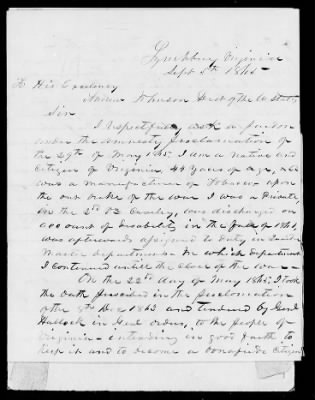 Lynchburg Virginia
Sept 5th 1865
To His Excelency
Andrew Johnson Prest of the U States
Sir
I respectfully ask a pardon
under the amnesty proclamation of
the 29th of May 1865. I am a native and
Citizen of Virginia, 44 years of age,
was a manufacturer of Tobacco upon
the out brake of the war I was a Private,
in the 2nd Va Cavalry, was discharged on
account of disability in the fall of 1861,
was afterwards assigned to duty in Quarter
Master Department in which department
I continued untill the close of the war —
On the 22nd day of May 1865, I took
the Oath prescribed in the proclamation
of the 8th Dec 1863 and tendered by Genl
Halleck in Genl orders, to the people of
Virginia — intending in good faith to
keep it and to become a bonafide Citizen